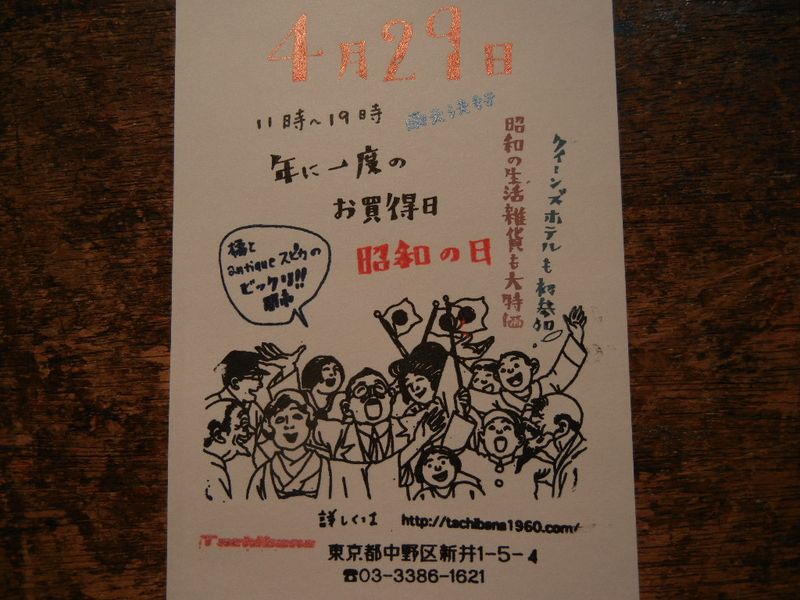 4月29日
11時〜19時
年に一度の
お買得日
昭和の日
昭和の生活雑貨も大特価
クイーンズホテルも初参加。
橘と
antiqueスピカの
ビックリ!!
詳しくは http://tachibana1960.com/
Tachibana
東京都中野区新井1-5-4
☎03-3386-1621